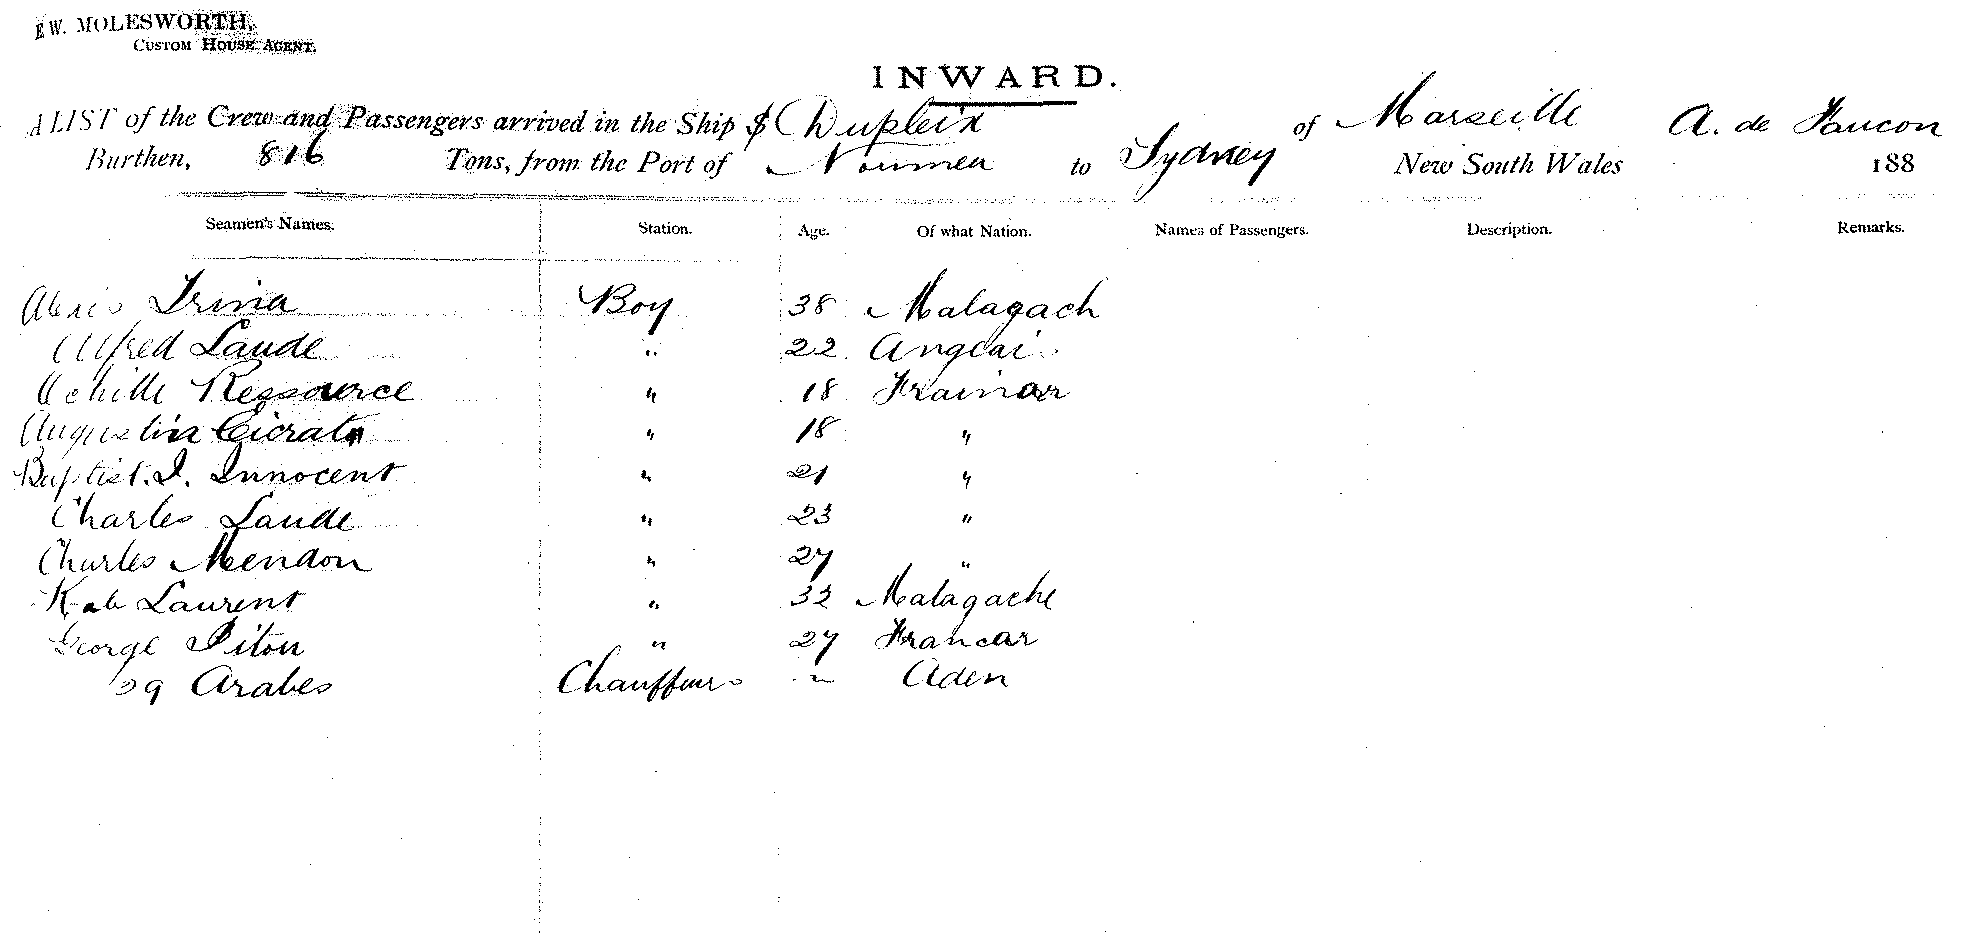 E W. MOLESWORTH,
CUSTOM HOUSE AGENT.
INWARD.
A LIST of the Crew and Passengers arrived in the Ship Dupleix of Marseille A. de Faucon
Burthen, 816 Tons, from the Port of Noumea to Sydney New South Wales 188
Seamen's Names. Station. Age. Of what Nation. Names of Passengers. Description. Remarks.
Alexis Irina Boy 38 Malagach
Alfred Laude " 22 Anglais
Achille Ressource " 18
Augustin " 18 "
Baptist. I. Innocent " 21 "
Charles Laude " 23 "
Charles Mendon " 27 "
Laurent " 32 Malagache
George Piton " 27 Francar
29 Arabes Chauffeurs " Aden